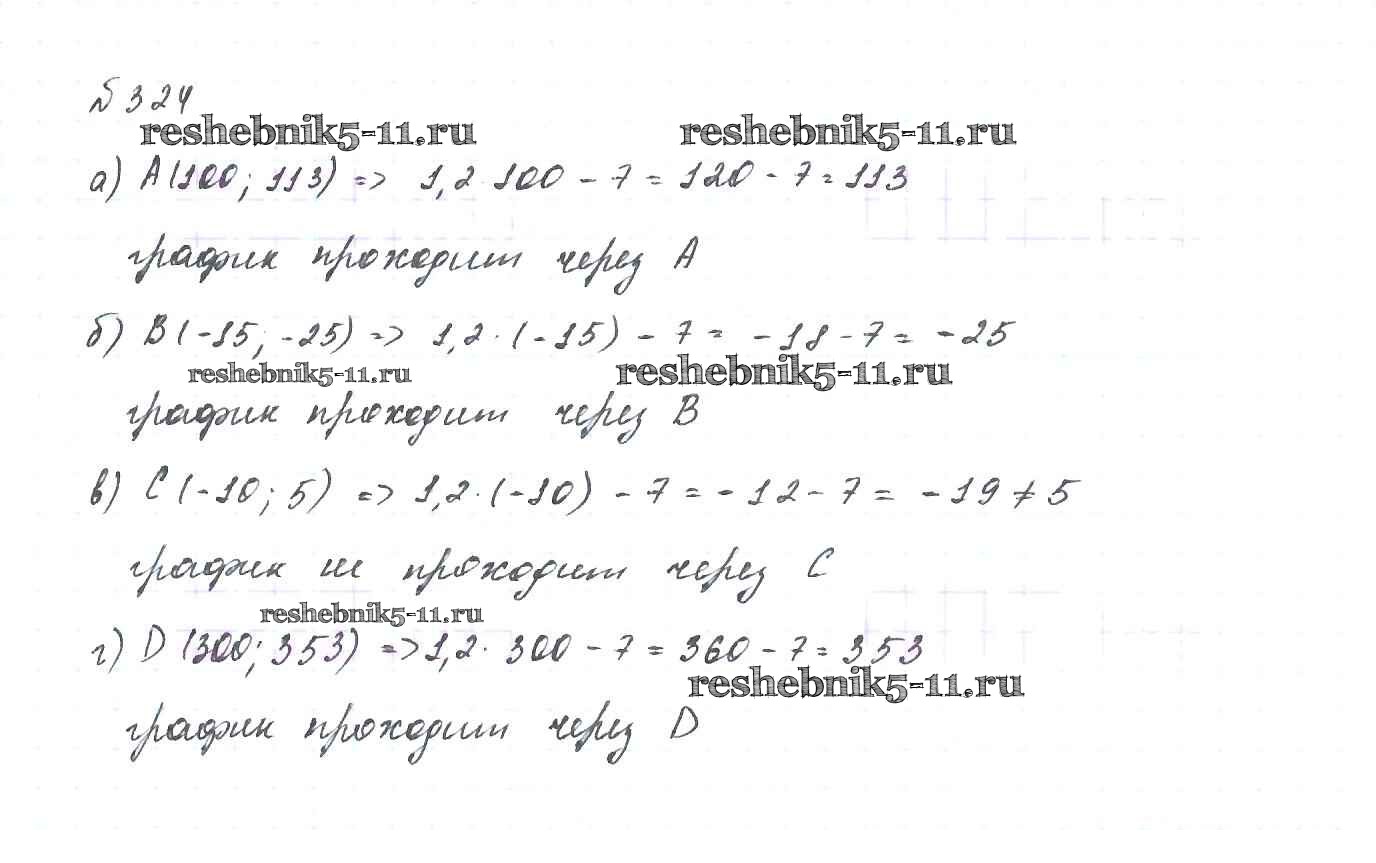 № 324
reshebnik5-11.ru reshebnik5-11.ru
а) A(100; 113) => 1,2 · 100 - 7 = 120 - 7 = 113
график проходит через A
б) B(-15; -25) => 1,2 · (-15) - 7 = -18 - 7 = -25
reshebnik5-11.ru reshebnik5-11.ru
график проходит через B
в) C(-10; 5) => 1,2 · (-10) - 7 = -12 - 7 = -19 ≠ 5
график не проходит через C
reshebnik5-11.ru
г) D(300; 353) => 1,2 · 300 - 7 = 360 - 7 = 353
reshebnik5-11.ru
график проходит через D